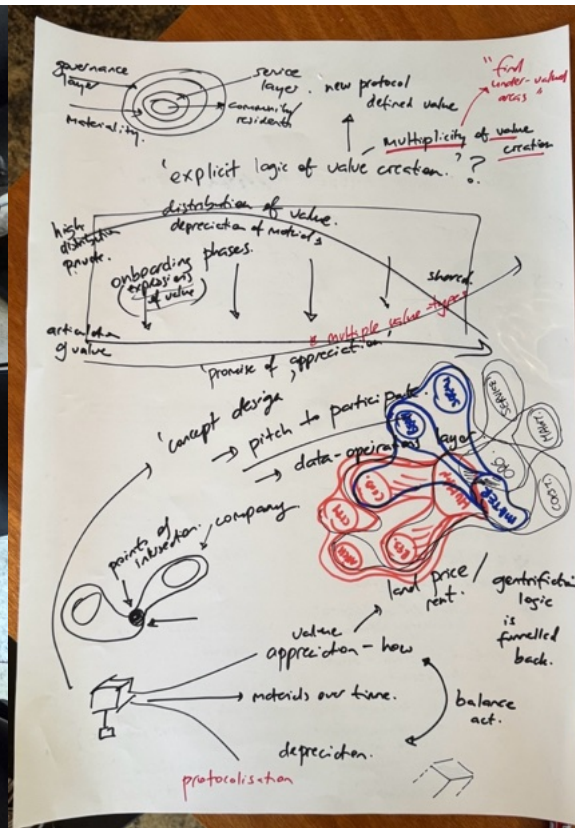 governance
layer
service
layer.
community/
residents
materiality.
new protocol
defined value
"find
under-valued
areas"
multiplicity of value
creation
'explicit logic of value creation.' ?
distribution of value.
depreciation of materials
high
distribution
private.
phases.
onboarding
(expressions
of value)
shared.
articulation
of value
* multiple value-types
'promise of appreciation'
'concept design,
→ pitch to participate.
→ data-operations layer
SERVICE
MAINT.
ORG.
COST.
MATTER
HUMAN
points of
intersection.
company.
land price /
rent.
gentrification
logic
is
funnelled
back.
value
appreciation - how
materials over time.
balance
act.
depreciation.
protocolisation